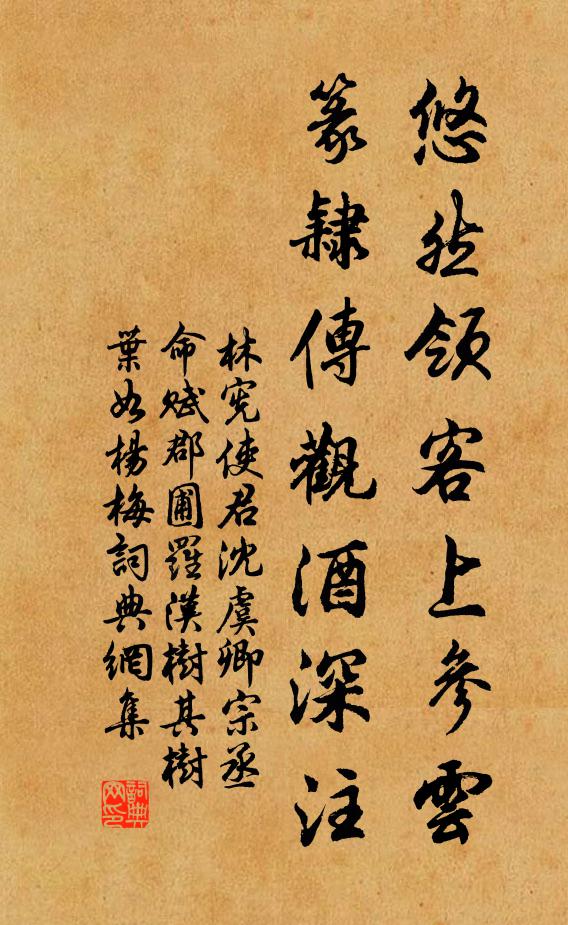 悠然領客上參雲
篆隸傳觀酒深注
林憲使君沈虞卿宗丞
命賦郡圃羅漢樹其樹
葉如楊梅詞典網集
詞典網印